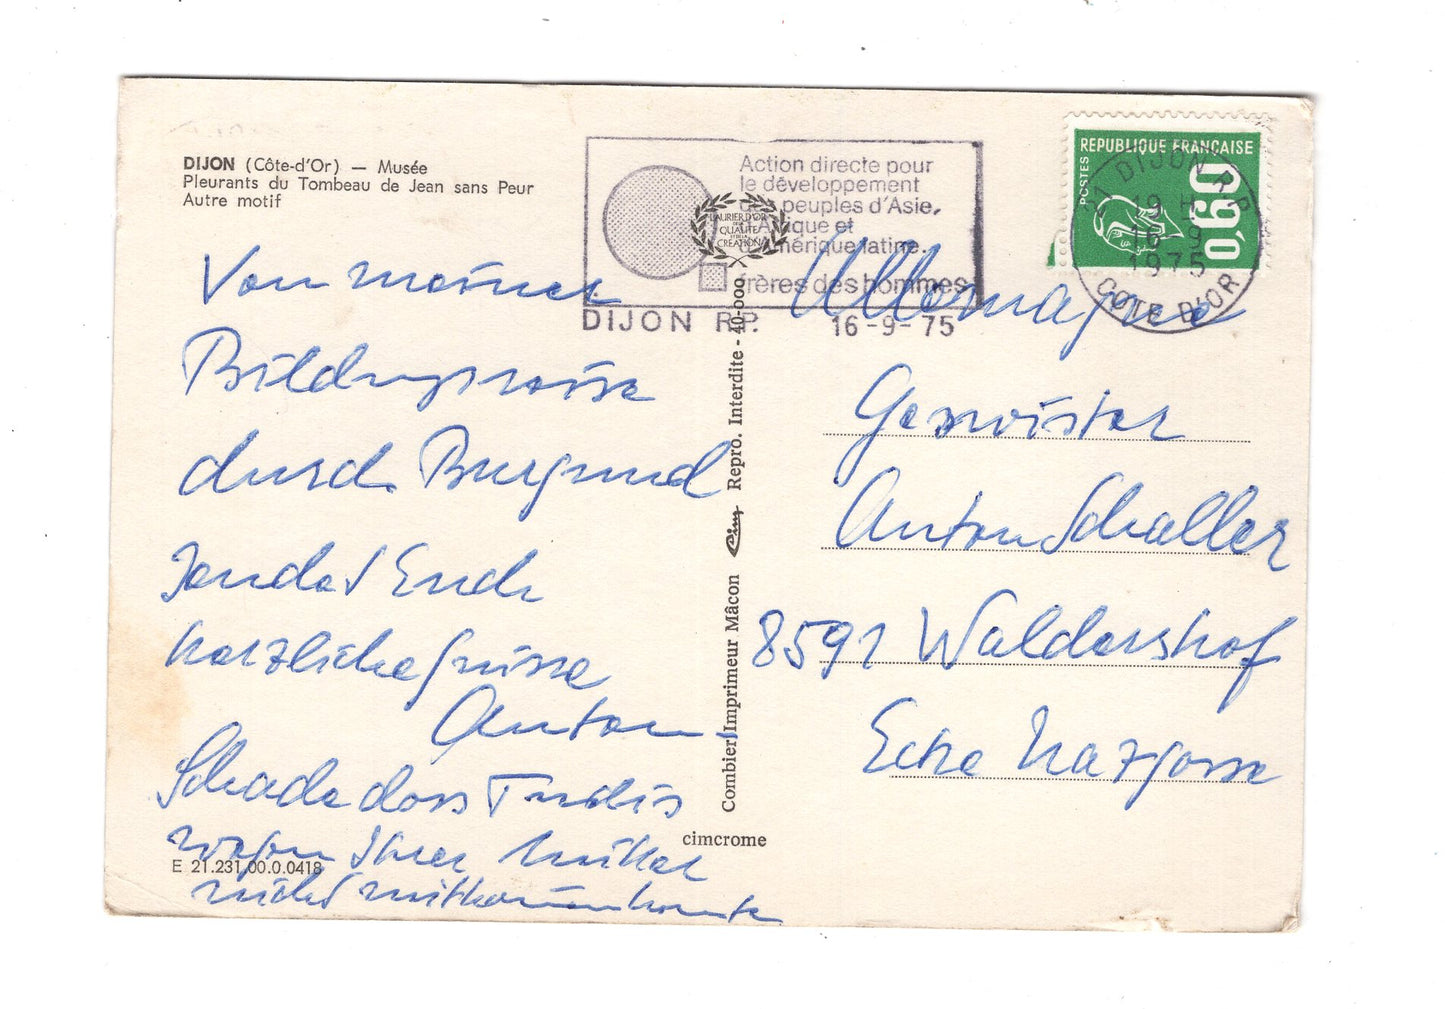 DIJON (Côte-d'Or) — Musée
Pleurants du Tombeau de Jean sans Peur
Autre motif
Action directe pour
le développement
des peuples d'Asie,
d'Afrique et
d'Amérique latine.
frères des hommes
DIJON R.P. 16-9-75
LAURIER D'OR
DE LA
QUALITÉ
ET DE LA
CRÉATION
REPUBLIQUE FRANÇAISE
POSTES
0,60
21 DIJON R.P.
19 H
16-9
1975
COTE D'OR
Von meiner
Bildungsreise
durch Burgund
sendet Euch
herzliche Grüsse
Anton
Schade dass Trudis
wegen Ihrer Mutter
nicht mitkommen konnte
Allemagne
Geswister
Anton Schaller
8591 Waldershof
Ecke Marzgasse
Combier Imprimeur Mâcon Cim Repro. Interdite - 40-000
cimcrome
E 21.231.00.0.0418